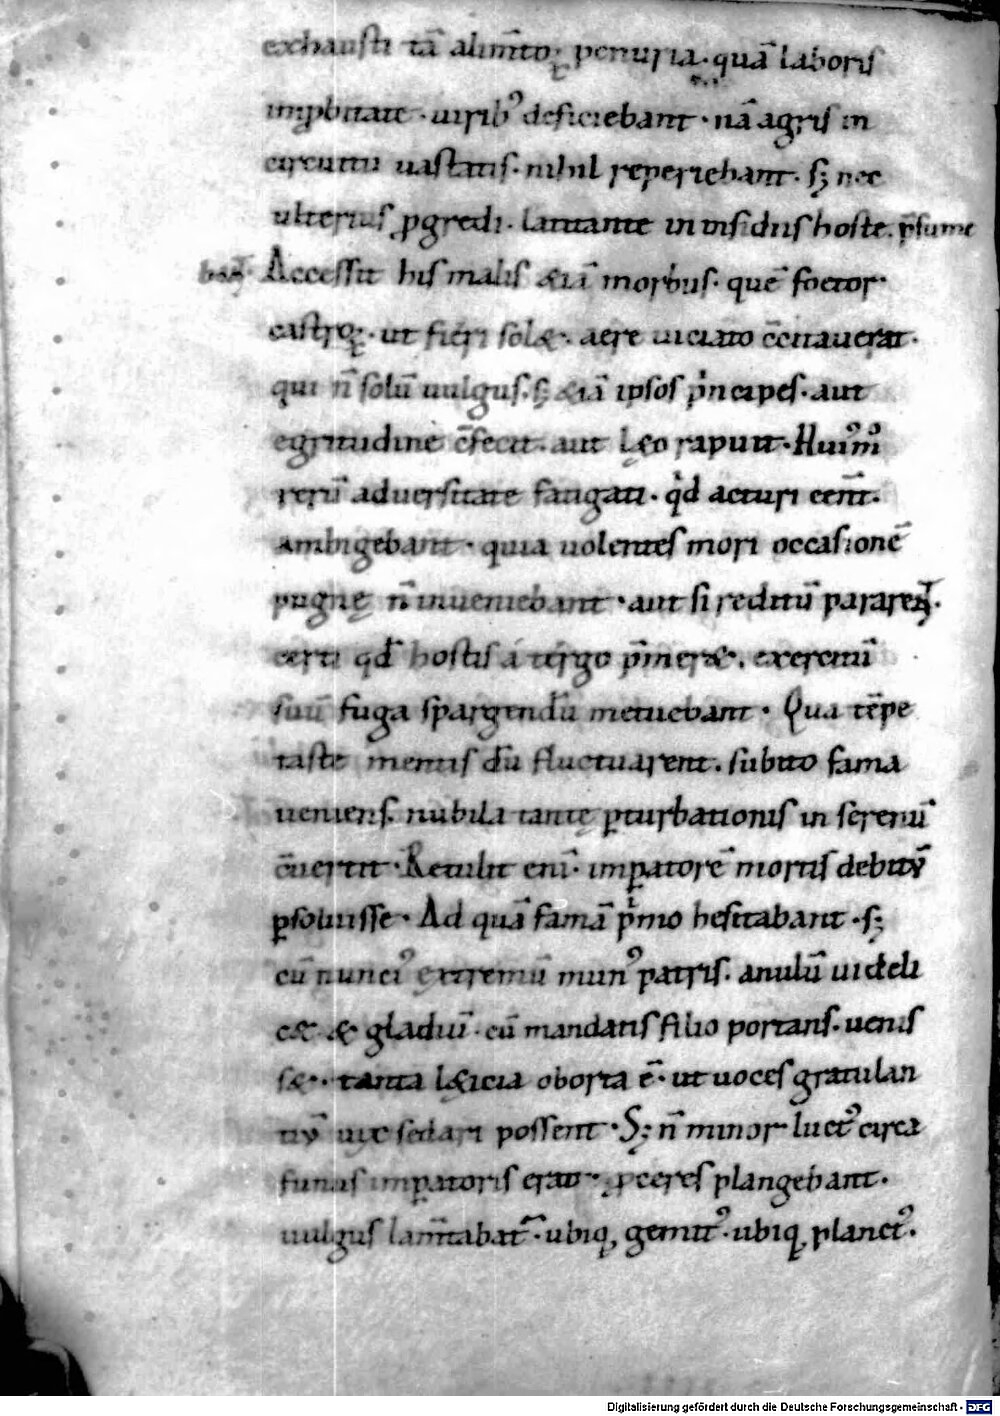 exhausti tā alim̄toꝝ penuria. quā laboris
inp̱bitate. uirib᾽ deficiebant. nā agris in
circuitu uastatis. nihil reperiebant. sꝫ nec
ulterius ꝓgredi. latitante in insidiis hoste. p̄sume
banꝉ. Accessit his malis &iā morbus. quē foetor
castroꝝ. ut fieri sol&. aere uiciato c̄citauerat.
qui n̄ solū uulgus. sꝫ &iā ipsos pͥncipes. aut
egritudine c̄fecit. aut l&o rapuit. Hui᾽m᾽
rerū aduersitate fatigati. qͥd acturi eēnt.
ambigebant. quia uolentes mori occasionē
pugnę n̄ inueniebant. aut si reditū pararenꝉ.
certi qđ hostis á tergo p̄mer&. exercitū
suū fuga spargendū metuebant. Qua tēpe
taste mentis dū fluctuarent. subito fama
ueniens. nubila tantę ꝑturbationis in serenū
c̄uertit. Retulit eni. imꝑatorē mortis debitū
ꝑsoluisse. Ad quā famā pͥmo hesitabant. sꝫ
cū nunci᾽ extremū mun᾽ patris. anulū uideli
c& & gladiū. cū mandatis filio portans. uenis
s&. tanta l&icia oborta ē. ut uoces gratulan
tiū uix sedari possent. Sꝫ n̄ minor luct᾽ circa
funus imꝑatoris erat. ꝓceres plangebant.
uulgus lam̄tabat᷑. ubiqꝫ gemit᾽. ubiqꝫ planct᾽.
Digitalisierung gefördert durch die Deutsche Forschungsgemeinschaft - DFG